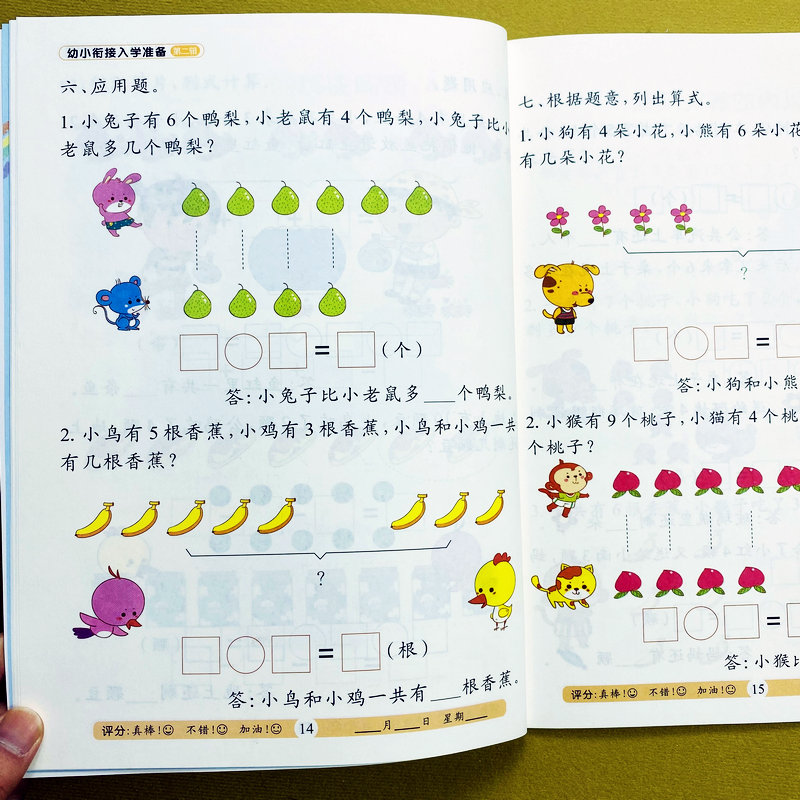 幼小衔接入学准备 第二辑
六、应用题。
1. 小兔子有6个鸭梨，小老鼠有4个鸭梨，小兔子比小
老鼠多几个鸭梨？
□○□=□(个)
答：小兔子比小老鼠多___个鸭梨。
2. 小鸟有5根香蕉，小鸡有3根香蕉，小鸟和小鸡一共
有几根香蕉？
?
□○□=□(根)
答：小鸟和小鸡一共有___根香蕉。
评分：真棒！ 不错！ 加油！ 14 ___月___日 星期___
七、根据题意，列出算式。
1. 小狗有4朵小花，小熊有6朵小花
有几朵小花？
?
□○□=
答：小狗和小熊
2. 小猴有9个桃子，小猫有4个桃
个桃子？
□○□=
答：小猴比
评分：真棒！ 不错！ 加油！ 15